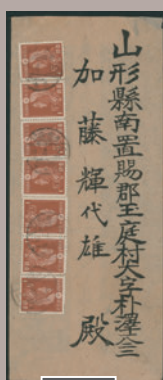 山形縣南置賜郡玉庭村大字朴澤
加藤輝代雄殿